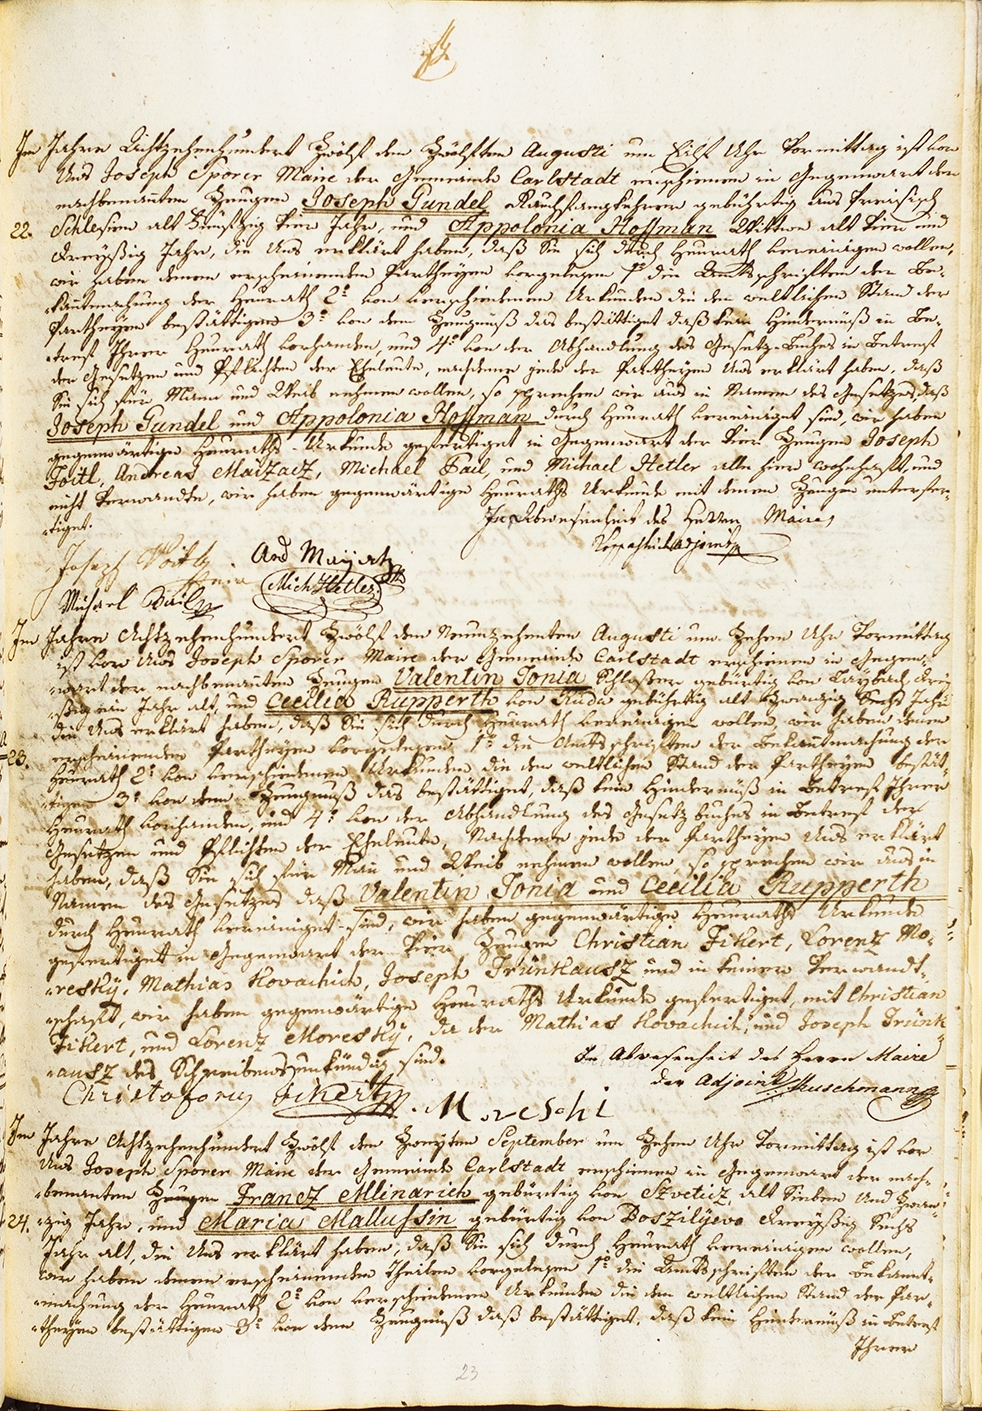 Im Jahre Achtzehenhundert Zwölf den Zwölften Augusti um Eilf Uhr Vormittag ist vor
Uns Joseph Sporer Maire der Gemeinde Carlstadt erschienen in Gegenwart der
nachbenanten Zeugen Joseph Gundel Rauchfangkehrer gebührtig aus Preisisch
22. Schlesien alt Fünfzig Vier Jahr, und Appolonia Hoffman Wittwe alt Vier und
dreyßig Jahr, die Uns erklärt haben, daß Sie sich durch Heurath vereinigen wollen,
wir haben denen erscheinenden Partheyen vorgelegen 1o die Amtsschriften der Be-
kantmachung der Heurath 2o von verschiedenen Urkunden die den weltlichen Stand der
Partheyen bestättigen 3o von dem Zeugnüß das bestättiget daß kein Hindernüß in Be-
tref Ihrer Heurath vorhanden, und 4o von der Abhandlung des Gesetz-Buches in Betref
der Gesetzen und Pflichten der Eheleute, nachdeme jede der Partheyen Uns erklärt haben, daß
Sie sich für Mann und Weib nehmen wollen, so sprechen wir aus in Namen des Gesetzes, daß
Joseph Gundel und Appolonia Hoffman durch Heurath vereiniget sind, wir haben
gegenwärtige Heuraths-Urkunde gefertiget in Gegenwart der Vier Zeugen Joseph
Foitl, Andreas Maizacz, Michael Bail, und Michael Hetler alle hier wohnhaft, und
nicht Verwandte, wir haben gegenwärtige Heuraths Urkunde mit denen Zeugen unterfer-
tiget.
In Abwesenheit des Herrn Maires
Adjoint
Joseph Voitl
And Majzatz
Mich Hetler
Michael Bail
Im Jahre Achtzehenhundert Zwölf den Neunzehenten Augusti um Zehen Uhr Vormittag
ist vor Uns Joseph Sporer Maire der Gemeinde Carlstadt erschienen in Gegen-
wart der nachbenanten Zeugen Valentin Jonia Schlosser gebürtig von Laybach drey-
ßig ein Jahr alt, und Cecilia Rupperth von Ruda gebührtig alt Zwanzig Sechs Jahr
die Uns erklärt haben, daß Sie sich durch Heurath vereinigen wollen, wir haben denen
23. erscheinenden Partheyen vorgelegen 1o die Amtsschriften der Bekantmachung der
Heurath 2o von verschiedenen Urkunden die den weltlichen Stand der Partheyen bestät-
tigen 3o von dem Zeugnüß das bestättiget, daß kein Hindernüß in Betref Ihrer
Heurath vorhanden, und 4o von der Abhandlung des Gesetzbuches in Betref der
Gesetzen und Pflichten der Eheleute, Nachdeme jede der Partheyen Uns erklärt
haben, daß Sie sich für Man und Weib nehmen wollen, so sprechen wir aus in
Namen des Gesetzes daß Valentin Jonia und Cecilia Rupperth
durch Heurath vereiniget sind, wir haben gegenwärtige Heuraths Urkunde
gefertiget in Gegenwart der Vier Zeugen Christian Fikert, Lorenz Mo-
resky, Mathias Kovachich, Joseph Trünkausz und in keiner Verwandt-
schaft, wir haben gegenwärtige Heuraths Urkunde gefertiget, mit Christian
Fikert, und Lorenz Moresky, da der Mathias Kovachich, und Joseph Trünk-
ausz des Schreibens unkündig sind.
In Abwesenheit des Herrn Maire
der Adjoint Muschmann
Christoforus Fikert
Moreschi
Im Jahre Achtzehenhundert Zwölf den Zweyten September um Zehen Uhr Vormittag ist vor
Uns Joseph Sporer Maire der Gemeinde Carlstadt erschienen in Gegenwart der nach-
benanten Zeugen Francz Mlinarich gebürtig von Szveticz alt Sieben und Zwan-
24. zig Jahr, und Maria Mallussin gebürtig von Boszilyevo dreyßig Sechs
Jahr alt, die Uns erklärt haben, daß Sie sich durch Heurath vereinigen wollen,
wir haben denen erscheinenden Theilen vorgelegen 1o die Amtsschriften der Bekant-
machung der Heurath 2o von verschiedenen Urkunden die den weltlichen Stand der Par-
theyen bestättigen 3o von dem Zeugnüß daß bestättiget, daß kein Hindernüß in Betref
Ihrer
23